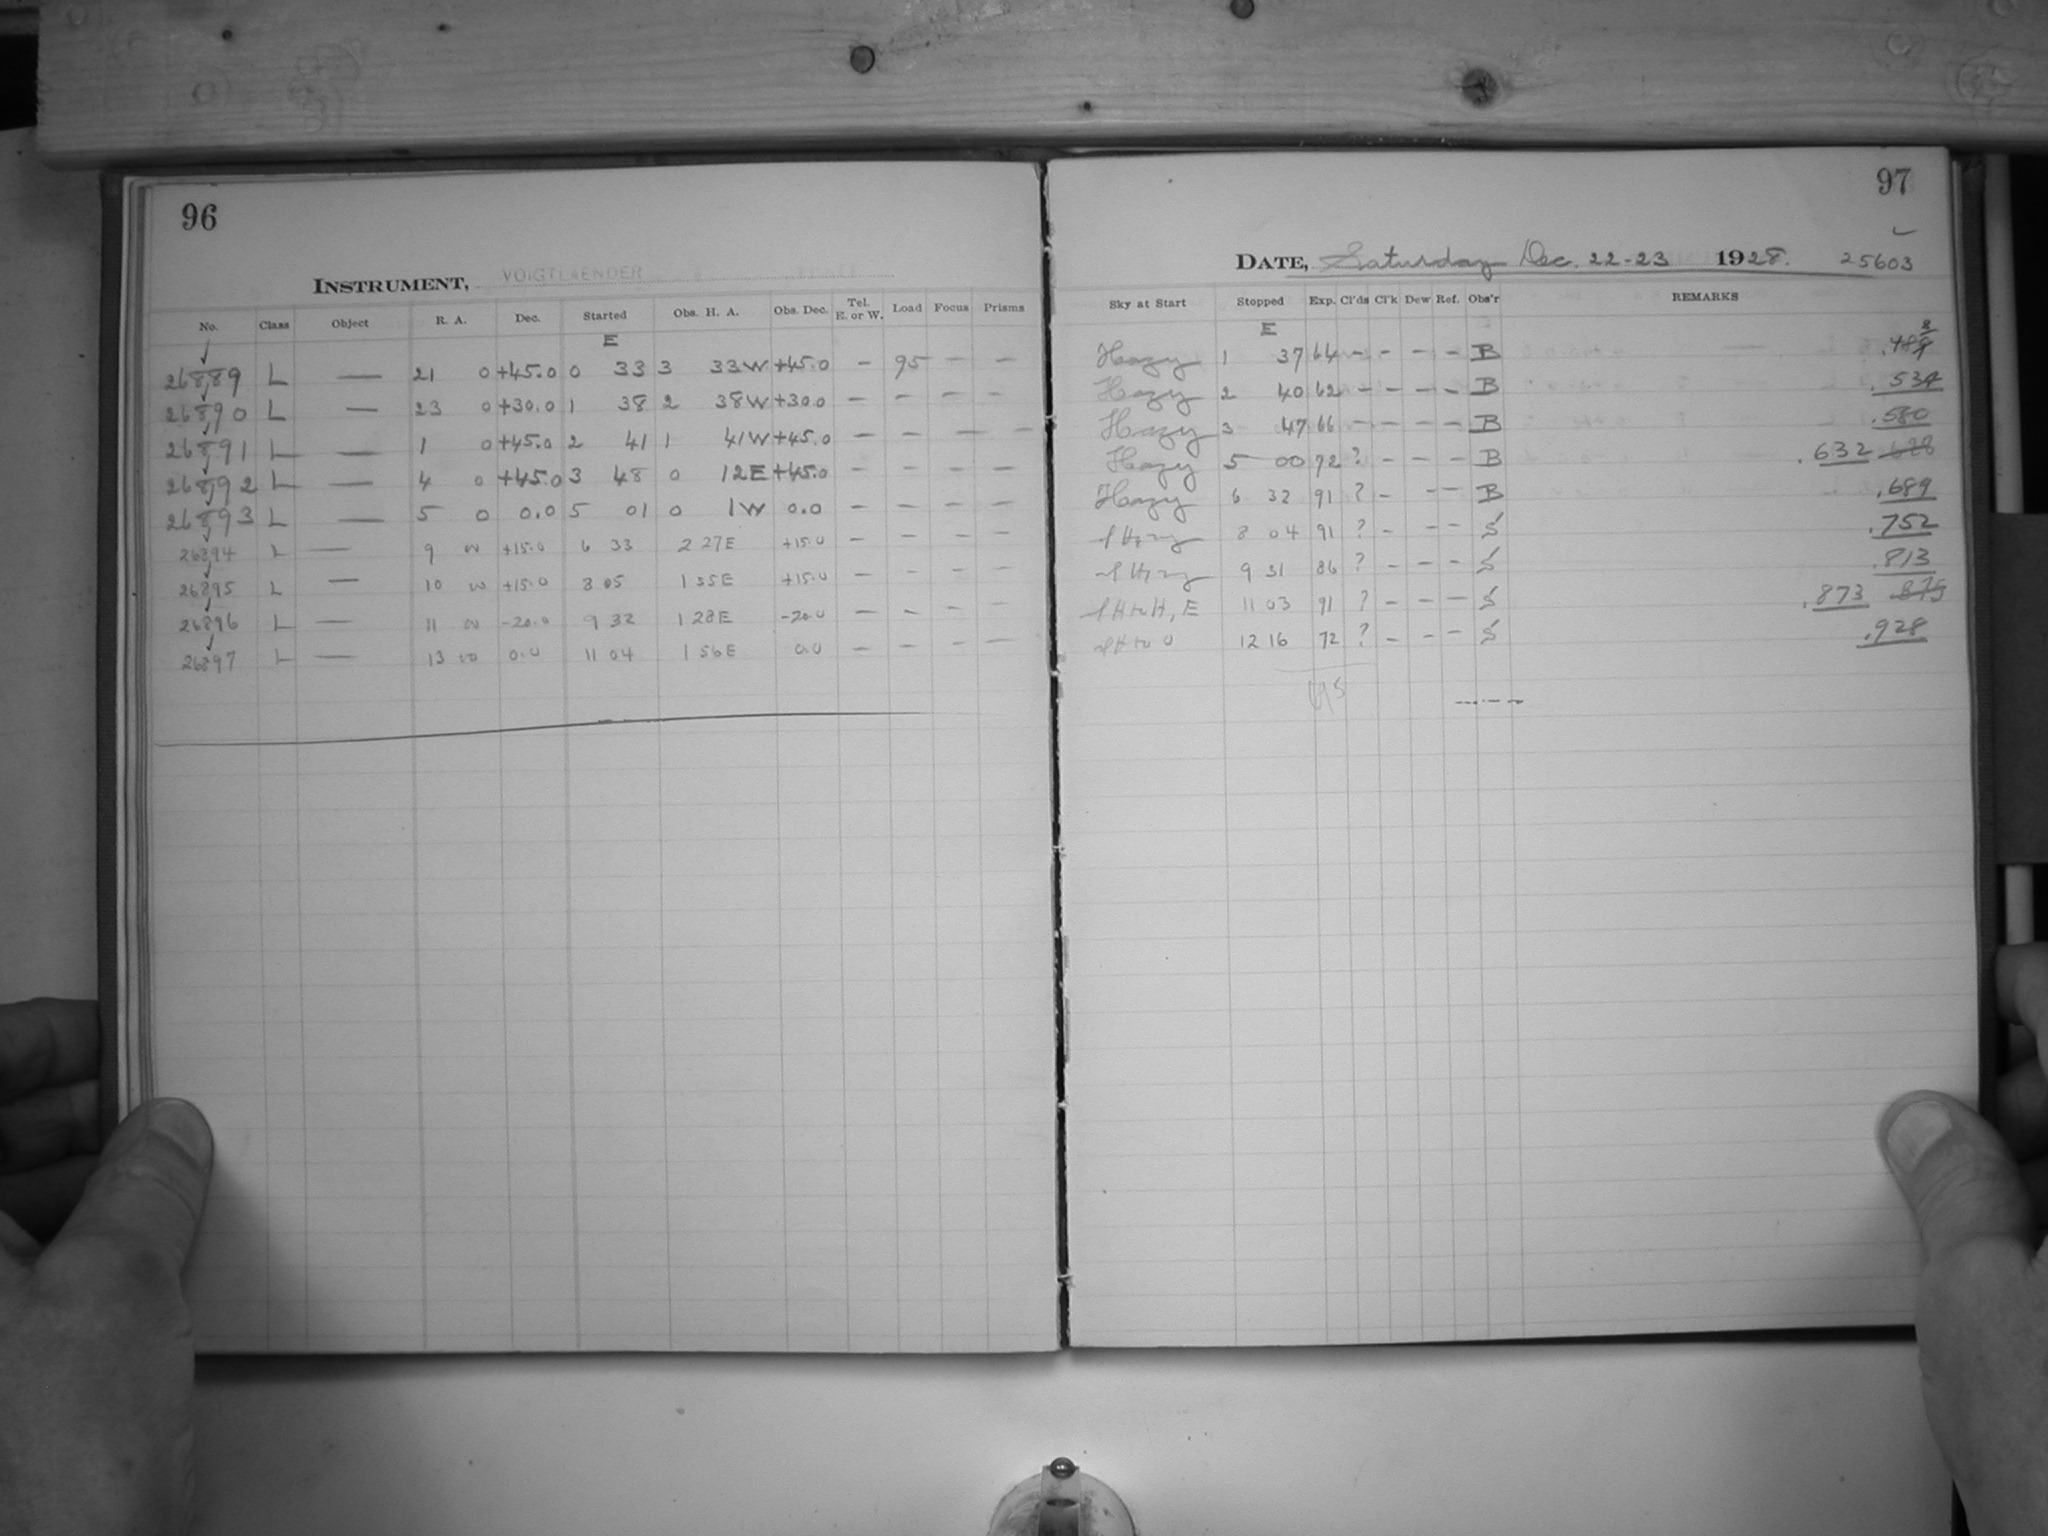 96
INSTRUMENT, VOIGTLAENDER
No. Class Object R. A. Dec. Started Obs. H. A. Obs. Dec. Tel. E. or W. Load Focus Prisms
E
26889 L — 21 0 +45.0 0 33 3 33W +45.0 — 95 — —
26890 L — 23 0 +30.0 1 38 2 38W +30.0 — — — —
26891 L — 1 0 +45.0 2 41 1 41W +45.0 — — — —
26892 L — 4 0 +45.0 3 48 0 12E +45.0 — — — —
26893 L — 5 0 0.0 5 01 0 1W 0.0 — — — —
26894 L — 9 +15.0 6 33 2 27E +15.0 — — — —
26895 L — 10 +15.0 8 05 1 55E +15.0 — — — —
26896 L — 11 -20.0 9 32 1 28E -20.0 — — — —
26897 L — 13 0.0 11 04 1 56E 0.0 — — — —
97
DATE, Saturday Dec. 22-23 1928. 25603
Sky at Start Stopped Exp. Cl'ds Cl'k Dew Ref. Obs'r REMARKS
E
Hazy 1 37 64 — — — — B .488
Hazy 2 40 62 — — — — B .534
Hazy 3 47 66 — — — — B .580
Hazy 5 00 72 ? — — — B .632 628
Hazy 6 32 91 ? — — — B .689
8 04 91 ? — — — S .752
9 31 86 ? — — — S .813
11 03 91 ? — — — S .873 875
12 16 72 ? — — — S .928